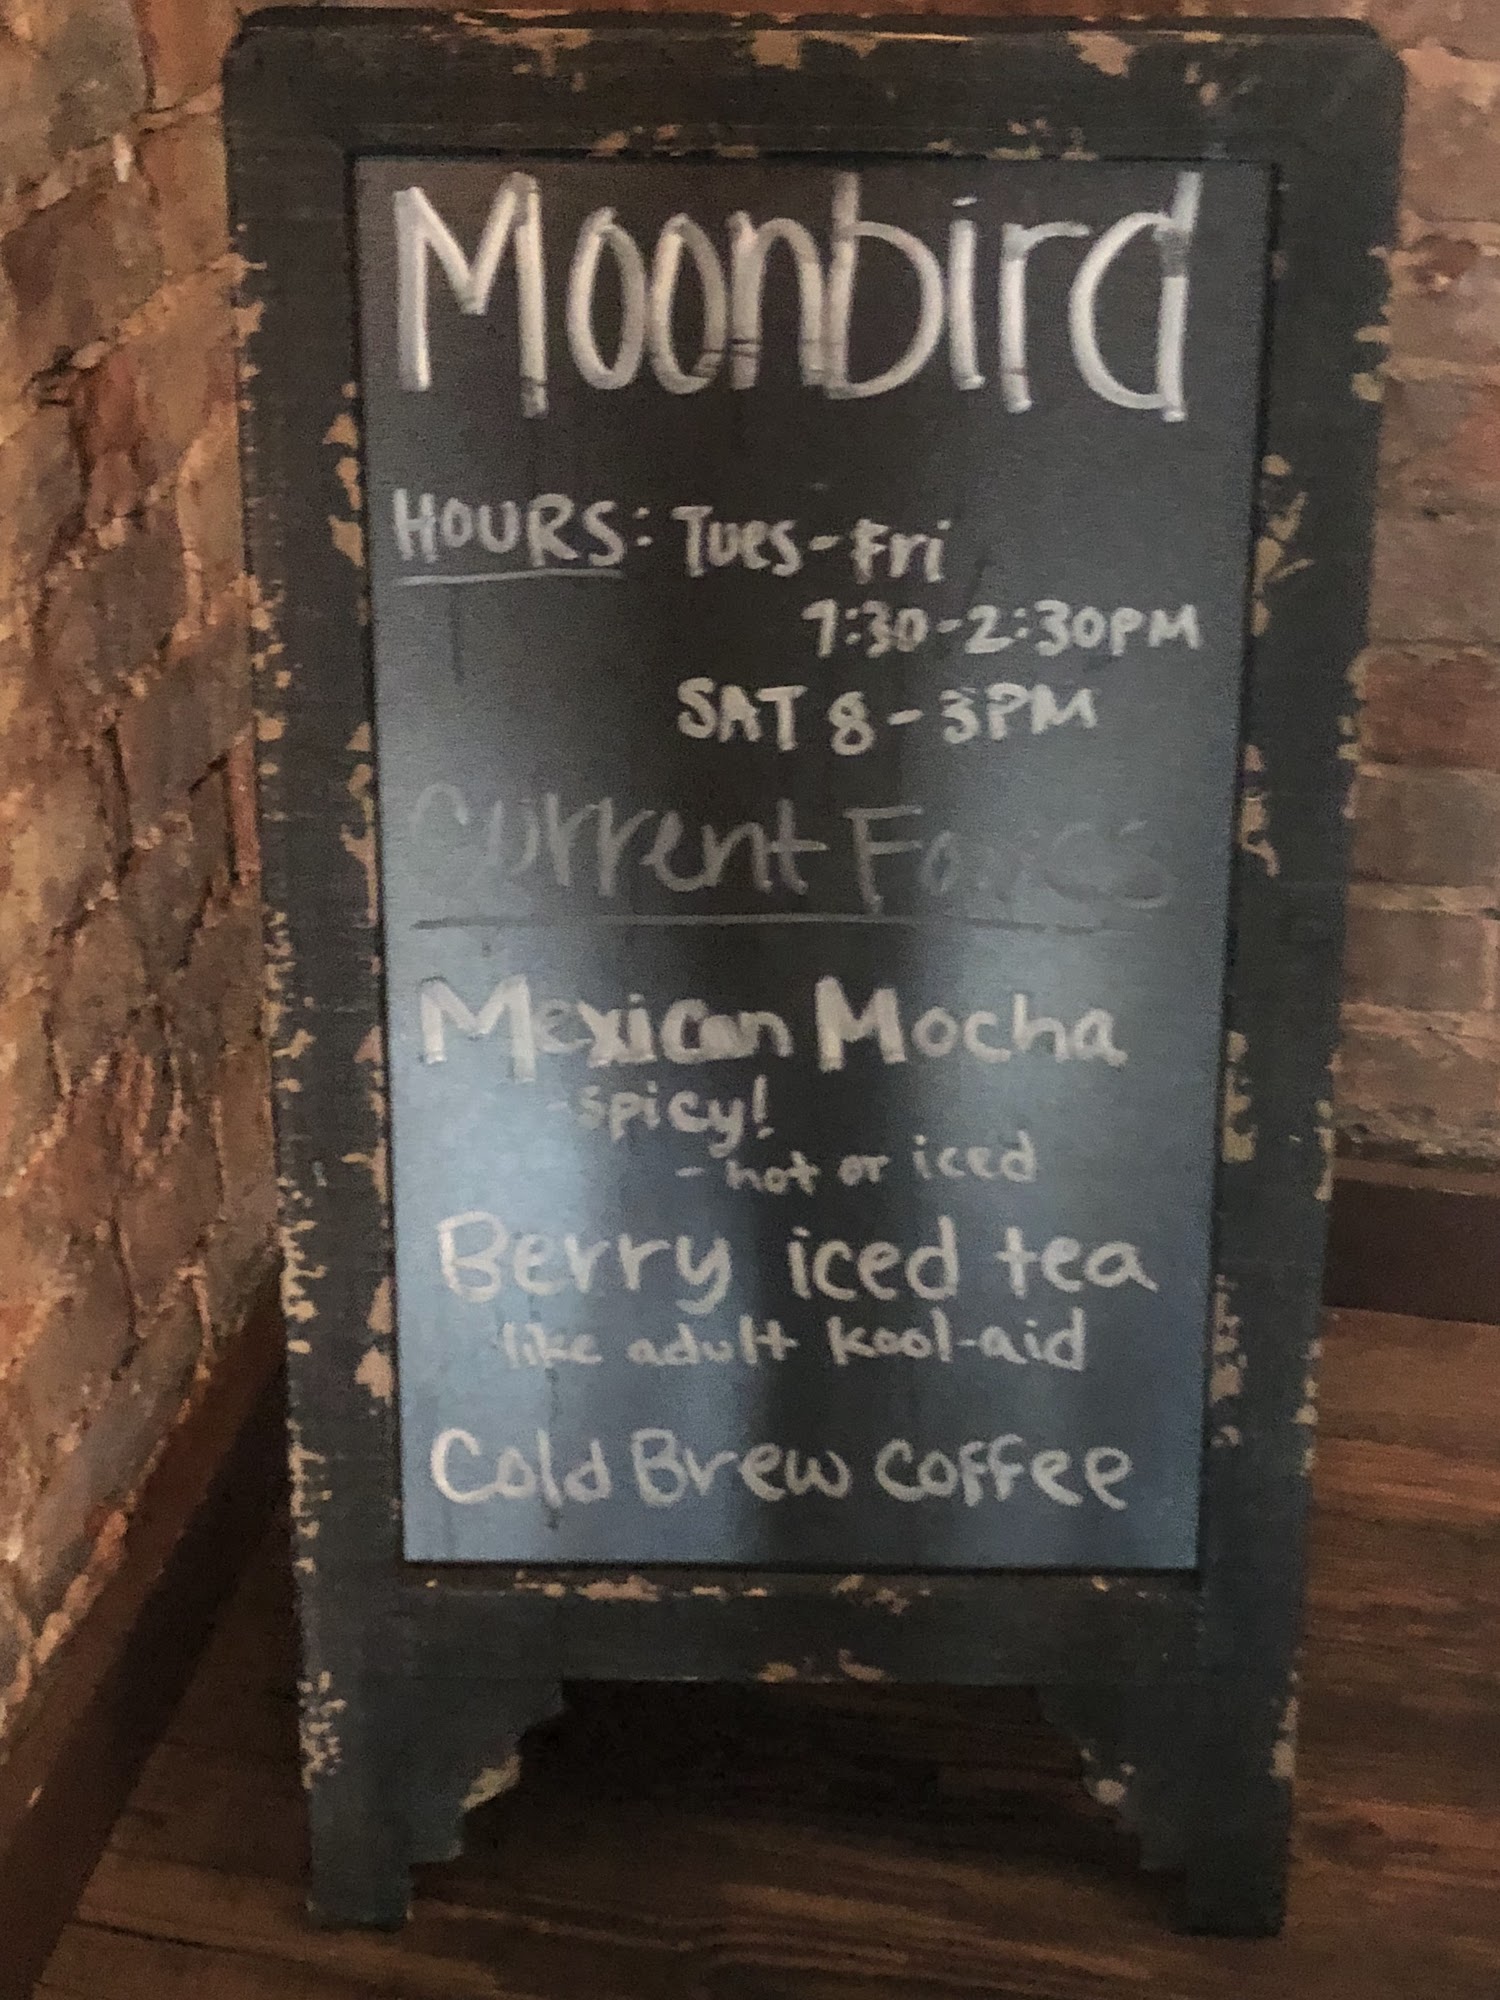 Moonbird
HOURS: Tues-Fri
7:30-2:30PM
SAT 8-3PM
Current Faves
Mexican Mocha
-spicy!
- hot or iced
Berry iced tea
like adult kool-aid
Cold Brew Coffee